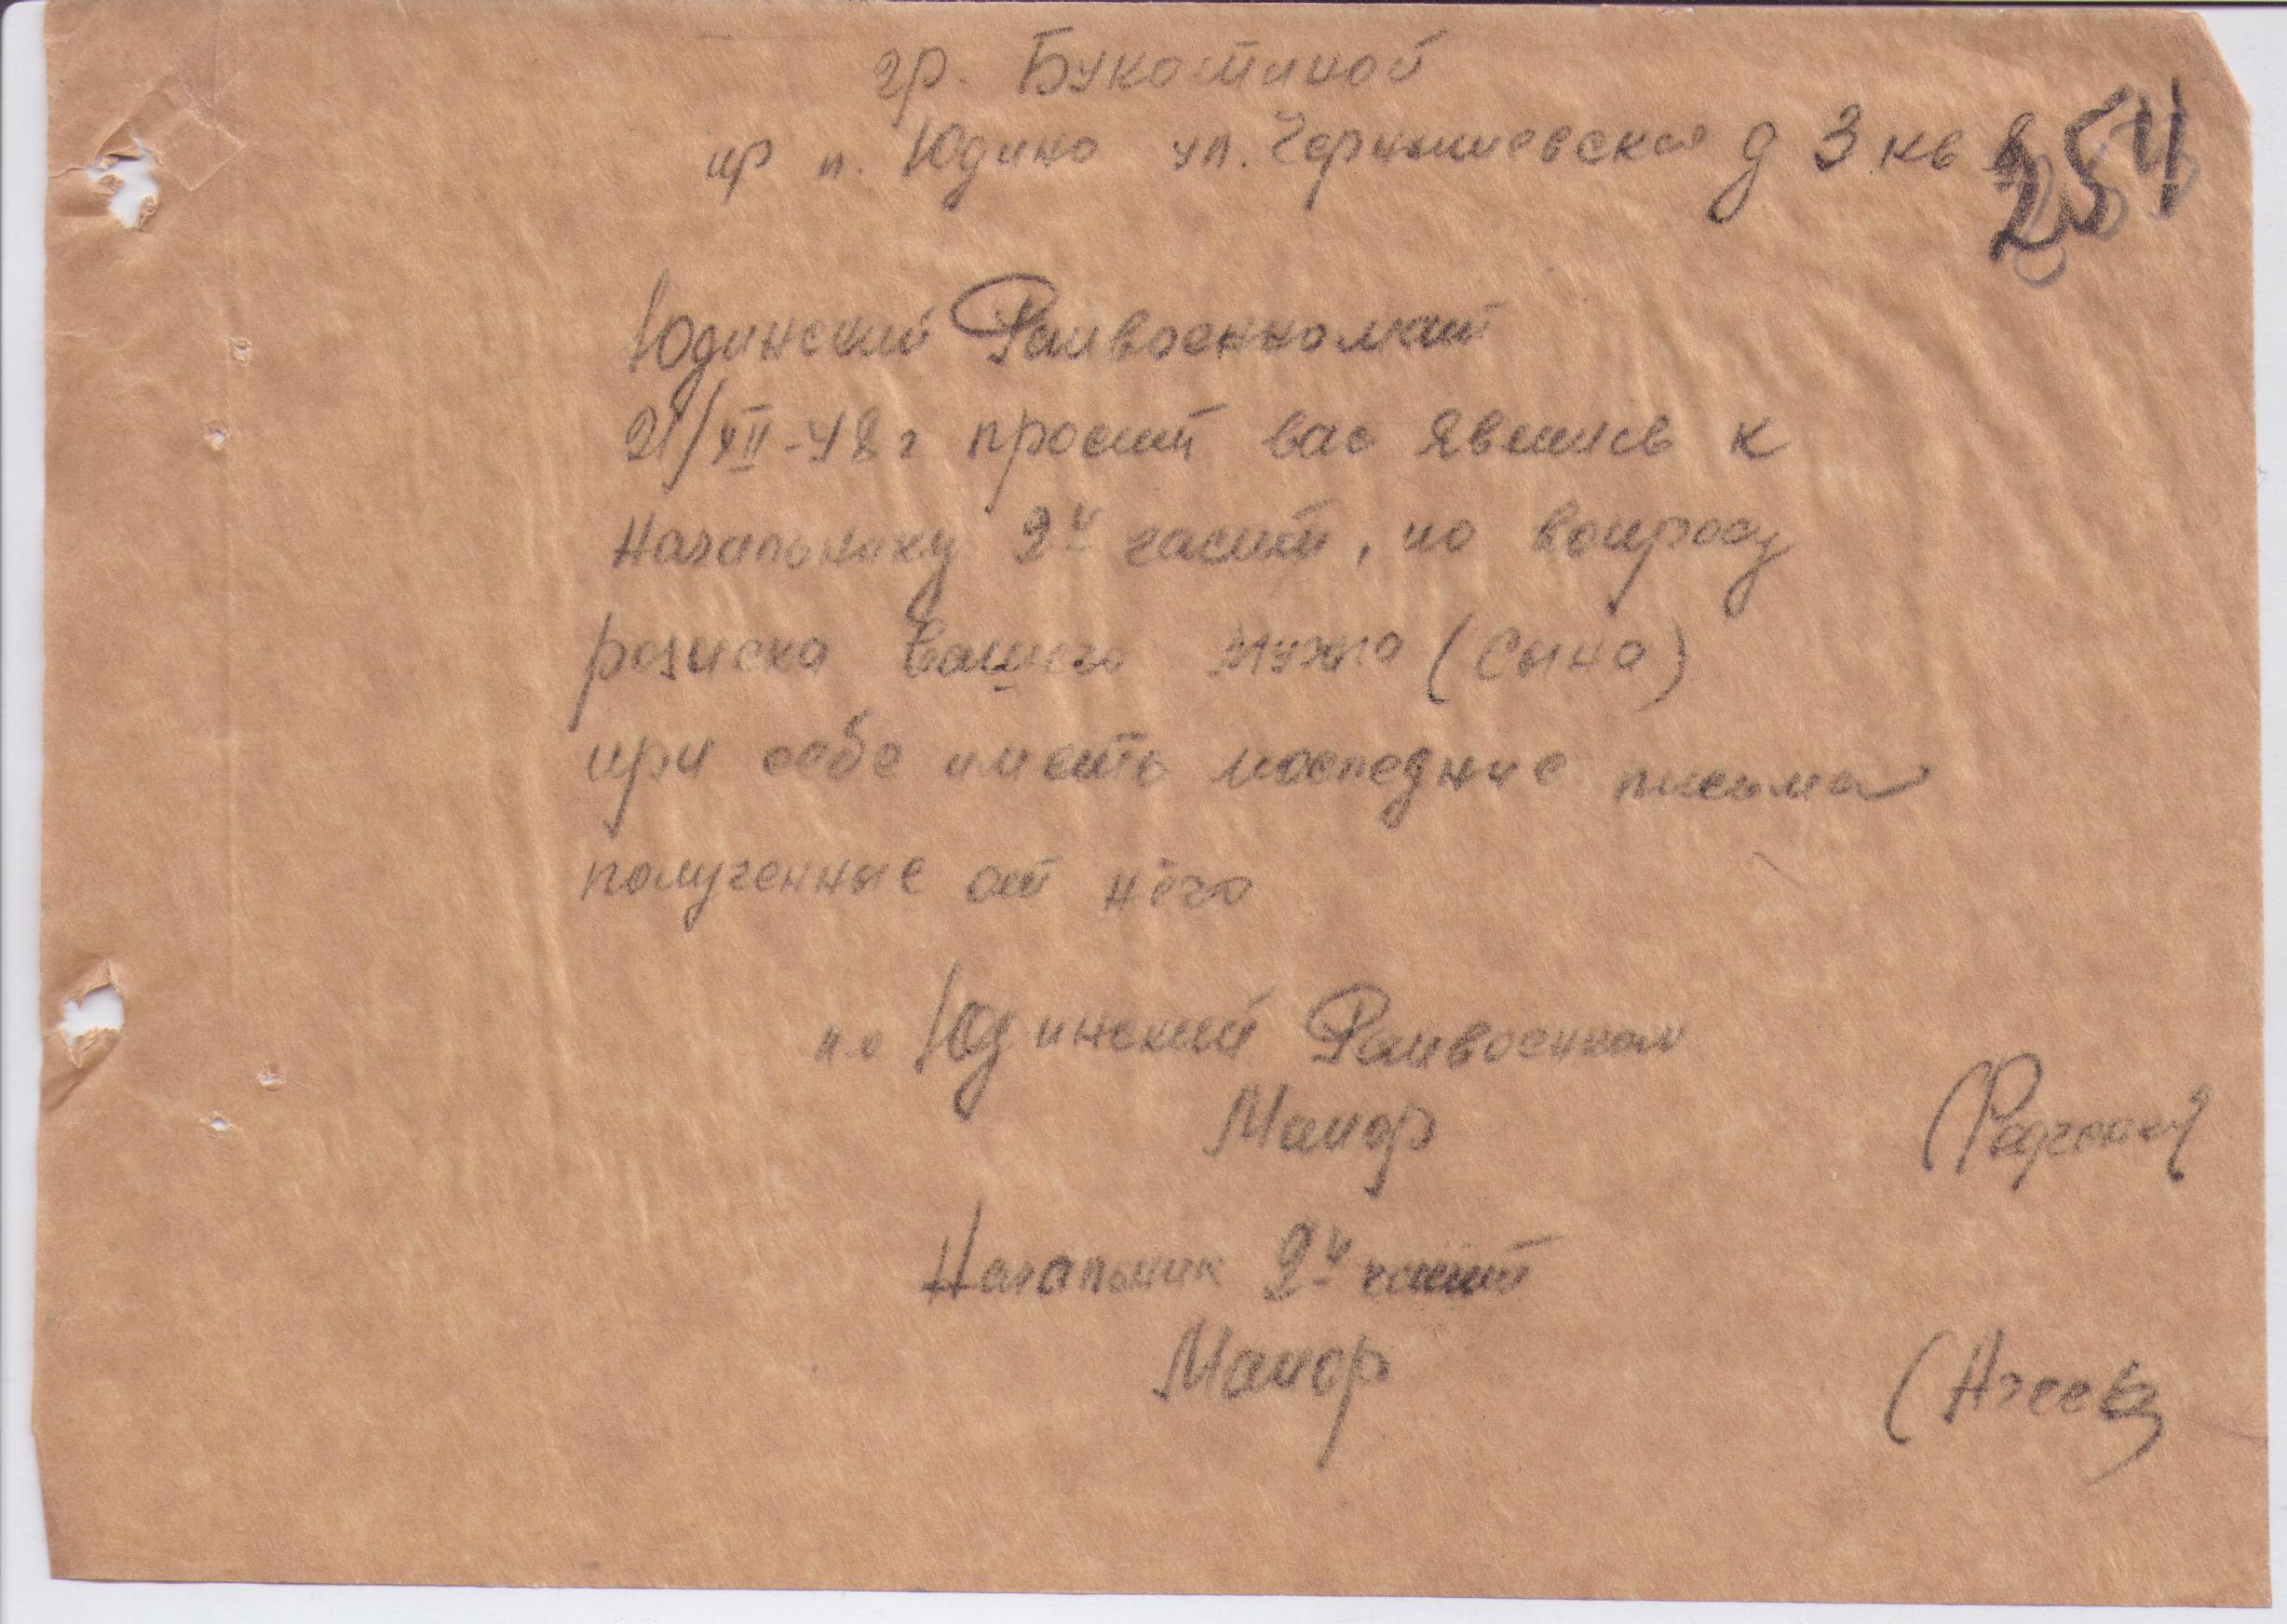 гр. Букостиной
пр п. Юдино ул. Чернышевская д 3 кв
254
Юдинский Райвоенкомат
21/XII-48 г просит вас явится к
Начальнику 2й части, по вопросу
розиска Вашего мужа (Сына)
при себе иметь последние письма
полученные от него
п.о Юдинский Райвоенком
Майор
Начальник 2й части
Майор
(Агеев)